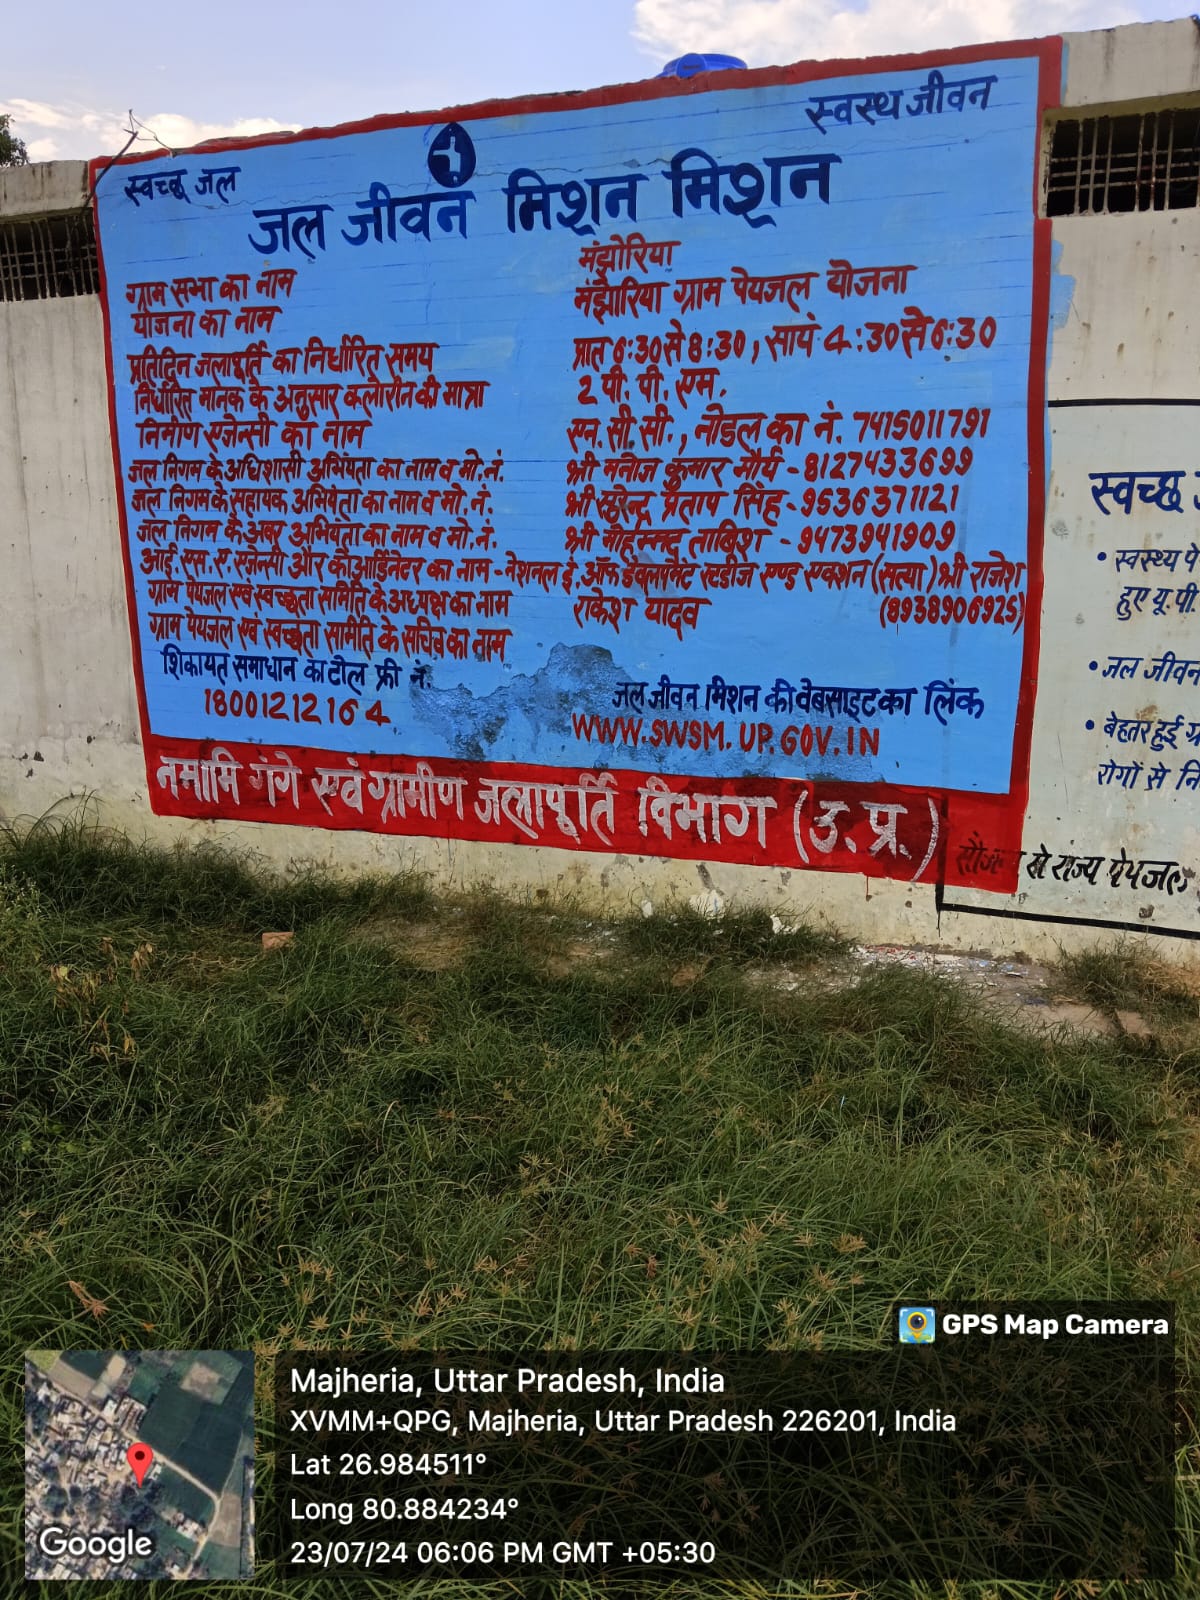 स्वच्छ जल
स्वस्थ जीवन
जल जीवन मिशन मिशन
ग्राम सभा का नाम मंझोरिया
योजना का नाम मंझोरिया ग्राम पेयजल योजना
प्रतिदिन जलापूर्ति का निर्धारित समय प्रात 6:30 से 8:30, सायं 4:30 से 6:30
निर्धारित मानक के अनुसार क्लोरीन की मात्रा 2 पी. पी. एम.
निर्माण एजेन्सी का नाम एन. सी. सी., नोडल का नं. 7415011791
जल निगम के अधिशासी अभियंता का नाम व मो. नं. श्री मनोज कुमार मौर्य - 8127433699
जल निगम के सहायक अभियंता का नाम व मो. नं. श्री प्रताप सिंह - 9536371121
जल निगम के अवर अभियंता का नाम व मो. नं. श्री मोहम्मद ताबिश - 9473941909
आई. एस. ए. एजेन्सी और कोआर्डिनेटर का नाम - नेशनल ई. ऑफ डेवलपमेंट स्टडीज एण्ड एक्शन (सत्या) श्री राजेश
(8938906925)
ग्राम पेयजल एवं स्वच्छता समिति के अध्यक्ष का नाम राकेश यादव
ग्राम पेयजल एवं स्वच्छता समिति के सचिव का नाम
शिकायत समाधान का टोल फ्री नं.
18001212164
जल जीवन मिशन की वेबसाइट का लिंक
WWW.SWSM.UP.GOV.IN
नमामि गंगे एवं ग्रामीण जलापूर्ति विभाग (उ.प्र.)
स्वच्छ
• स्वस्थ्य पे
हुए यू.पी.
• जल जीवन
• बेहतर हुई ग्र
रोगों से नि
से राज्य पेयजल
GPS Map Camera
Majheria, Uttar Pradesh, India
XVMM+QPG, Majheria, Uttar Pradesh 226201, India
Lat 26.984511°
Long 80.884234°
23/07/24 06:06 PM GMT +05:30
Google